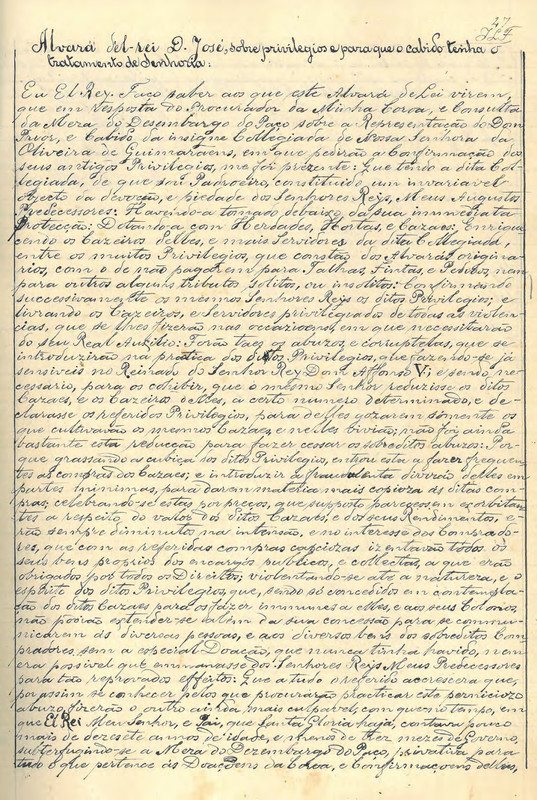 47
J.L.F.
Alvará del-rei D. José, sobre privilegios e para que o cabido tenha o
tratamento de Senhoria:
Eu El Rey. Faço saber aos que este Alvará de Lei virem,
que em resposta do Procurador da Minha Coroa, e Consulta
da Meza do Desembargo do Paço sobre a Representação do Dom
Prior, e Cabido da insigne Collegiada de Nossa Senhora da
Oliveira de Guimaraens, em que pedirão a Confirmação dos
seus antigos Privilegios, me foi prezente: Que tendo a dita Col-
legiada, de que sou Padroeiro, constituido um invariavel
objecto da devoção, e piedade dos Senhores Reys, Meus Augustos
Predecessores: Havendo-a tomado debaixo da sua immediata
Protecção: Dotando-a com Herdades, Hortas, e Cazaes: Enrique
cendo os Cazeiros delles, e mais Servidores da dita Collegiada,
entre os muitos Privilegios, que constão dos Alvarás origina-
rios, com o de não pagarem para Talhas, Fintas, e Pedidos, nem
para outros alguns tributos solitos, ou insolitos: Confirmando
successivamente os mesmos Senhores Reys os ditos Privilegios; e
livrando os Cazeiros, e Servidores privilegiados de todas as violen-
cias, que se lhes fizerão nas occazioens, em que necessitarão
do seu Real Auxilio: Forão taes os abuzos, e corruptelas, que se
introduzirão na prática dos ditos Privilegios, que fazendo-se já
sensiveis no Reinado do Senhor Rey Dom Affonso V; e sendo ne-
cessario, para os cohibir, que o mesmo Senhor reduzisse os ditos
Cazaes, e os Cazeiros delles, a certo numero determinado, e de-
clarasse os referidos Privilegios, para delles gozarem sómente os
que cultivavão os mesmos Cazaes, e nelles vivião; não foi ainda
bastante esta reducção para fazer cessar os sobreditos abuzos: Por
que grassando a cubiça nos ditos Privilegios, entrou esta a fazer frequen-
tes as compras dos Cazaes; e introduzir a fraudulenta divizão delles em
partes minimas, para darem materia mais copioza ás ditas com-
pras; celebrando-se estas por preços, que supposto pareção em exorbitan-
tes a respeito do valor dos ditos Cazaes, e dos seus Rendimentos, e-
rão sempre diminutos na intensão, e no interesse dos Comprado-
res, que com as referidas compras capciozas izentavão todos os
seus bens proprios dos encargos publicos, e collectas, a que erão
obrigados por todos os Direitos; violentando-se até a natureza, e o
espirito dos ditos Privilegios, que, sendo só concedidos em contempla-
ção dos ditos Cazaes para os fazer immunes a elles, e aos seus Colonos,
não podião extender-se além da sua concessão para se commu-
nicarem ás diversas pessoas, e aos diversos bens dos sobreditos Com
pradores, sem a especial Doação, que nunca tinha havido, nem
era possivel que emmanasse dos Senhores Reys Meus Predecessores
para tão reprovados effeitos: Que a tudo o referido accrescera que,
por assim se conhecer pelos que procurarão practicar este pernicioso
abuzo, fizerão o outro ainda mais culpavel, com que no tempo, em
que El Rei Meu Senhor, e Pai, que Santa Gloria haja, contava pouco
mais de dezesete annos de idade, e menos de tres mezes de Governo,
subterfugindo-se a Meza do Dezembargo do Paço, privativa para
tudo o que pertence ás Doaçoens da Coroa, e Confirmaçoens dellas,